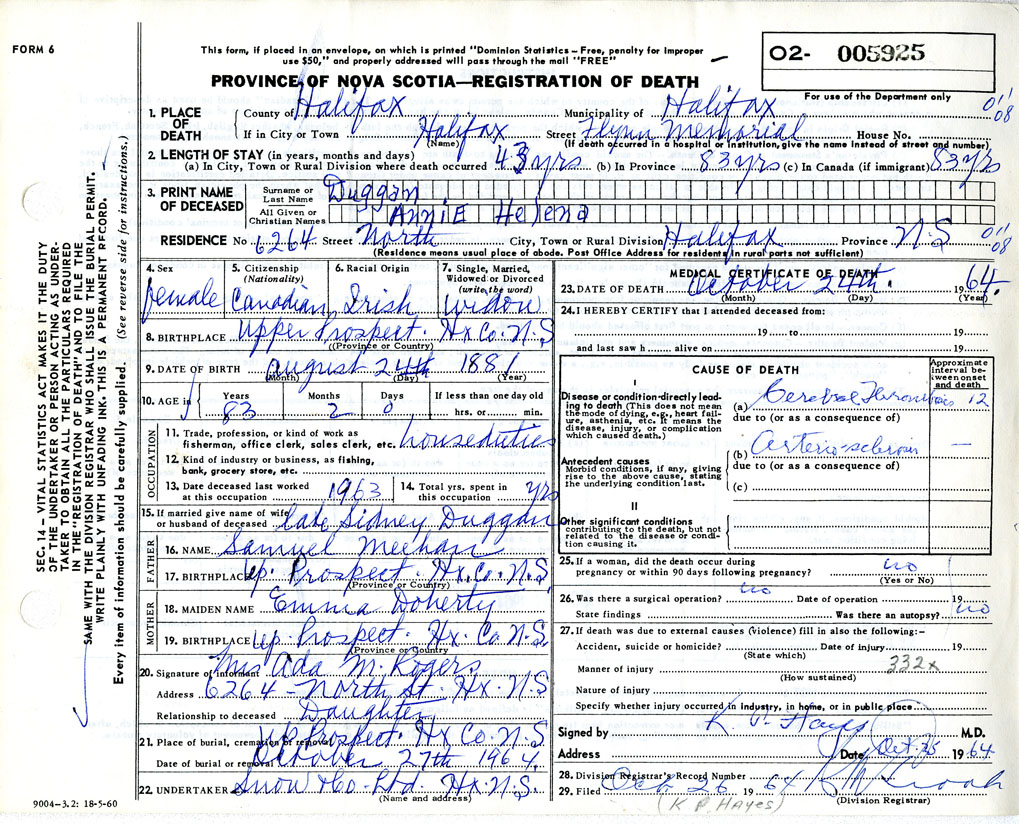 FORM 6
This form, if placed in an envelope, on which is printed "Dominion Statistics – Free, penalty for improper
use $50," and properly addressed will pass through the mail "FREE"
O2- 005925
For use of the Department only
PROVINCE OF NOVA SCOTIA—REGISTRATION OF DEATH
1. PLACE OF DEATH
County of Halifax Municipality of Halifax 011
08
If in City or Town Halifax Street Flynn Memorial House No.
(Name) (If death occurred in a hospital or institution, give the name instead of street and number)
2. LENGTH OF STAY (in years, months and days)
(a) In City, Town or Rural Division where death occurred 43 yrs (b) In Province 83 yrs (c) In Canada (if immigrant) 83 yrs
3. PRINT NAME OF DECEASED
Surname or Last Name Duggan
All Given or Christian Names ANNIE Helena
RESIDENCE No. 6264 Street North City, Town or Rural Division Halifax Province N.S 011
08
(Residence means usual place of abode. Post Office Address for residents in rural parts not sufficient)
4. Sex female
5. Citizenship (Nationality) Canadian
6. Racial Origin Irish
7. Single, Married, Widowed or Divorced (write the word) widow
8. BIRTHPLACE Upper Prospect. Hx Co. N.S
(Province or Country)
9. DATE OF BIRTH August 24th 1881
(Month) (Day) (Year)
10. AGE in Years Months Days If less than one day old
83 2 0 hrs. or min.
OCCUPATION
11. Trade, profession, or kind of work as
fisherman, office clerk, sales clerk, etc. houseduties
12. Kind of industry or business, as fishing,
bank, grocery store, etc.
13. Date deceased last worked
at this occupation 1963
14. Total yrs. spent in
this occupation yrs
15. If married give name of wife
or husband of deceased late Sidney Duggan
FATHER
16. NAME Samuel Meehan
17. BIRTHPLACE Up. Prospect. Hx. Co. N.S
(Province or Country)
MOTHER
18. MAIDEN NAME Emma Doherty
19. BIRTHPLACE Up. Prospect. Hx. Co. N.S
(Province or Country
20. Signature of informant Mrs Ada M. Rogers
Address 6264 – North St. Hx. N.S
Relationship to deceased Daughter
21. Place of burial, cremation or removal Up Prospect. Hx Co. N.S
Date of burial or removal October 27th 1964.
22. UNDERTAKER Snow & Co. Ltd. Hx. N.S.
(Name and address)
9004–3.2: 18-5-60
MEDICAL CERTIFICATE OF DEATH
23. DATE OF DEATH October 24th. 1964.
(Month) (Day) (Year)
24. I HEREBY CERTIFY that I attended deceased from:
19 to 19
and last saw h alive on 19
CAUSE OF DEATH
Approximate interval between onset and death
I
Disease or condition directly leading to death (This does not mean the mode of dying, e.g., heart failure, asthenia, etc. It means the disease, injury, or complication which caused death.)
(a) Cerebral Thrombosis 12
due to (or as a consequence of)
Antecedent causes
Morbid conditions, if any, giving rise to the above cause, stating the underlying condition last.
(b) Arterio-sclerosis –
due to (or as a consequence of)
(c)
II
Other significant conditions
contributing to the death, but not related to the disease or condition causing it.
25. If a woman, did the death occur during
pregnancy or within 90 days following pregnancy? no
(Yes or No)
26. Was there a surgical operation? no Date of operation 19
State findings Was there an autopsy? no
27. If death was due to external causes (violence) fill in also the following:–
Accident, suicide or homicide? Date of injury 19
(State which)
Manner of injury 332x
(How sustained)
Nature of injury
Specify whether injury occurred in industry, in home, or in public place
Signed by K. P. Hayes M.D.
Address Date Oct. 25 1964
28. Division Registrar's Record Number
29. Filed Oct. 26 1964
(Division Registrar)
(K P. HAYES)
SEC. 14 – VITAL STATISTICS ACT MAKES IT THE DUTY
OF THE UNDERTAKER OR PERSON ACTING AS UNDER-
TAKER TO OBTAIN ALL THE PARTICULARS REQUIRED
IN THE "REGISTRATION OF DEATH" AND TO FILE THE
SAME WITH THE DIVISION REGISTRAR WHO SHALL ISSUE THE BURIAL PERMIT.
WRITE PLAINLY WITH UNFADING INK. THIS IS A PERMANENT RECORD.
Every item of information should be carefully supplied. (See reverse side for instructions.)